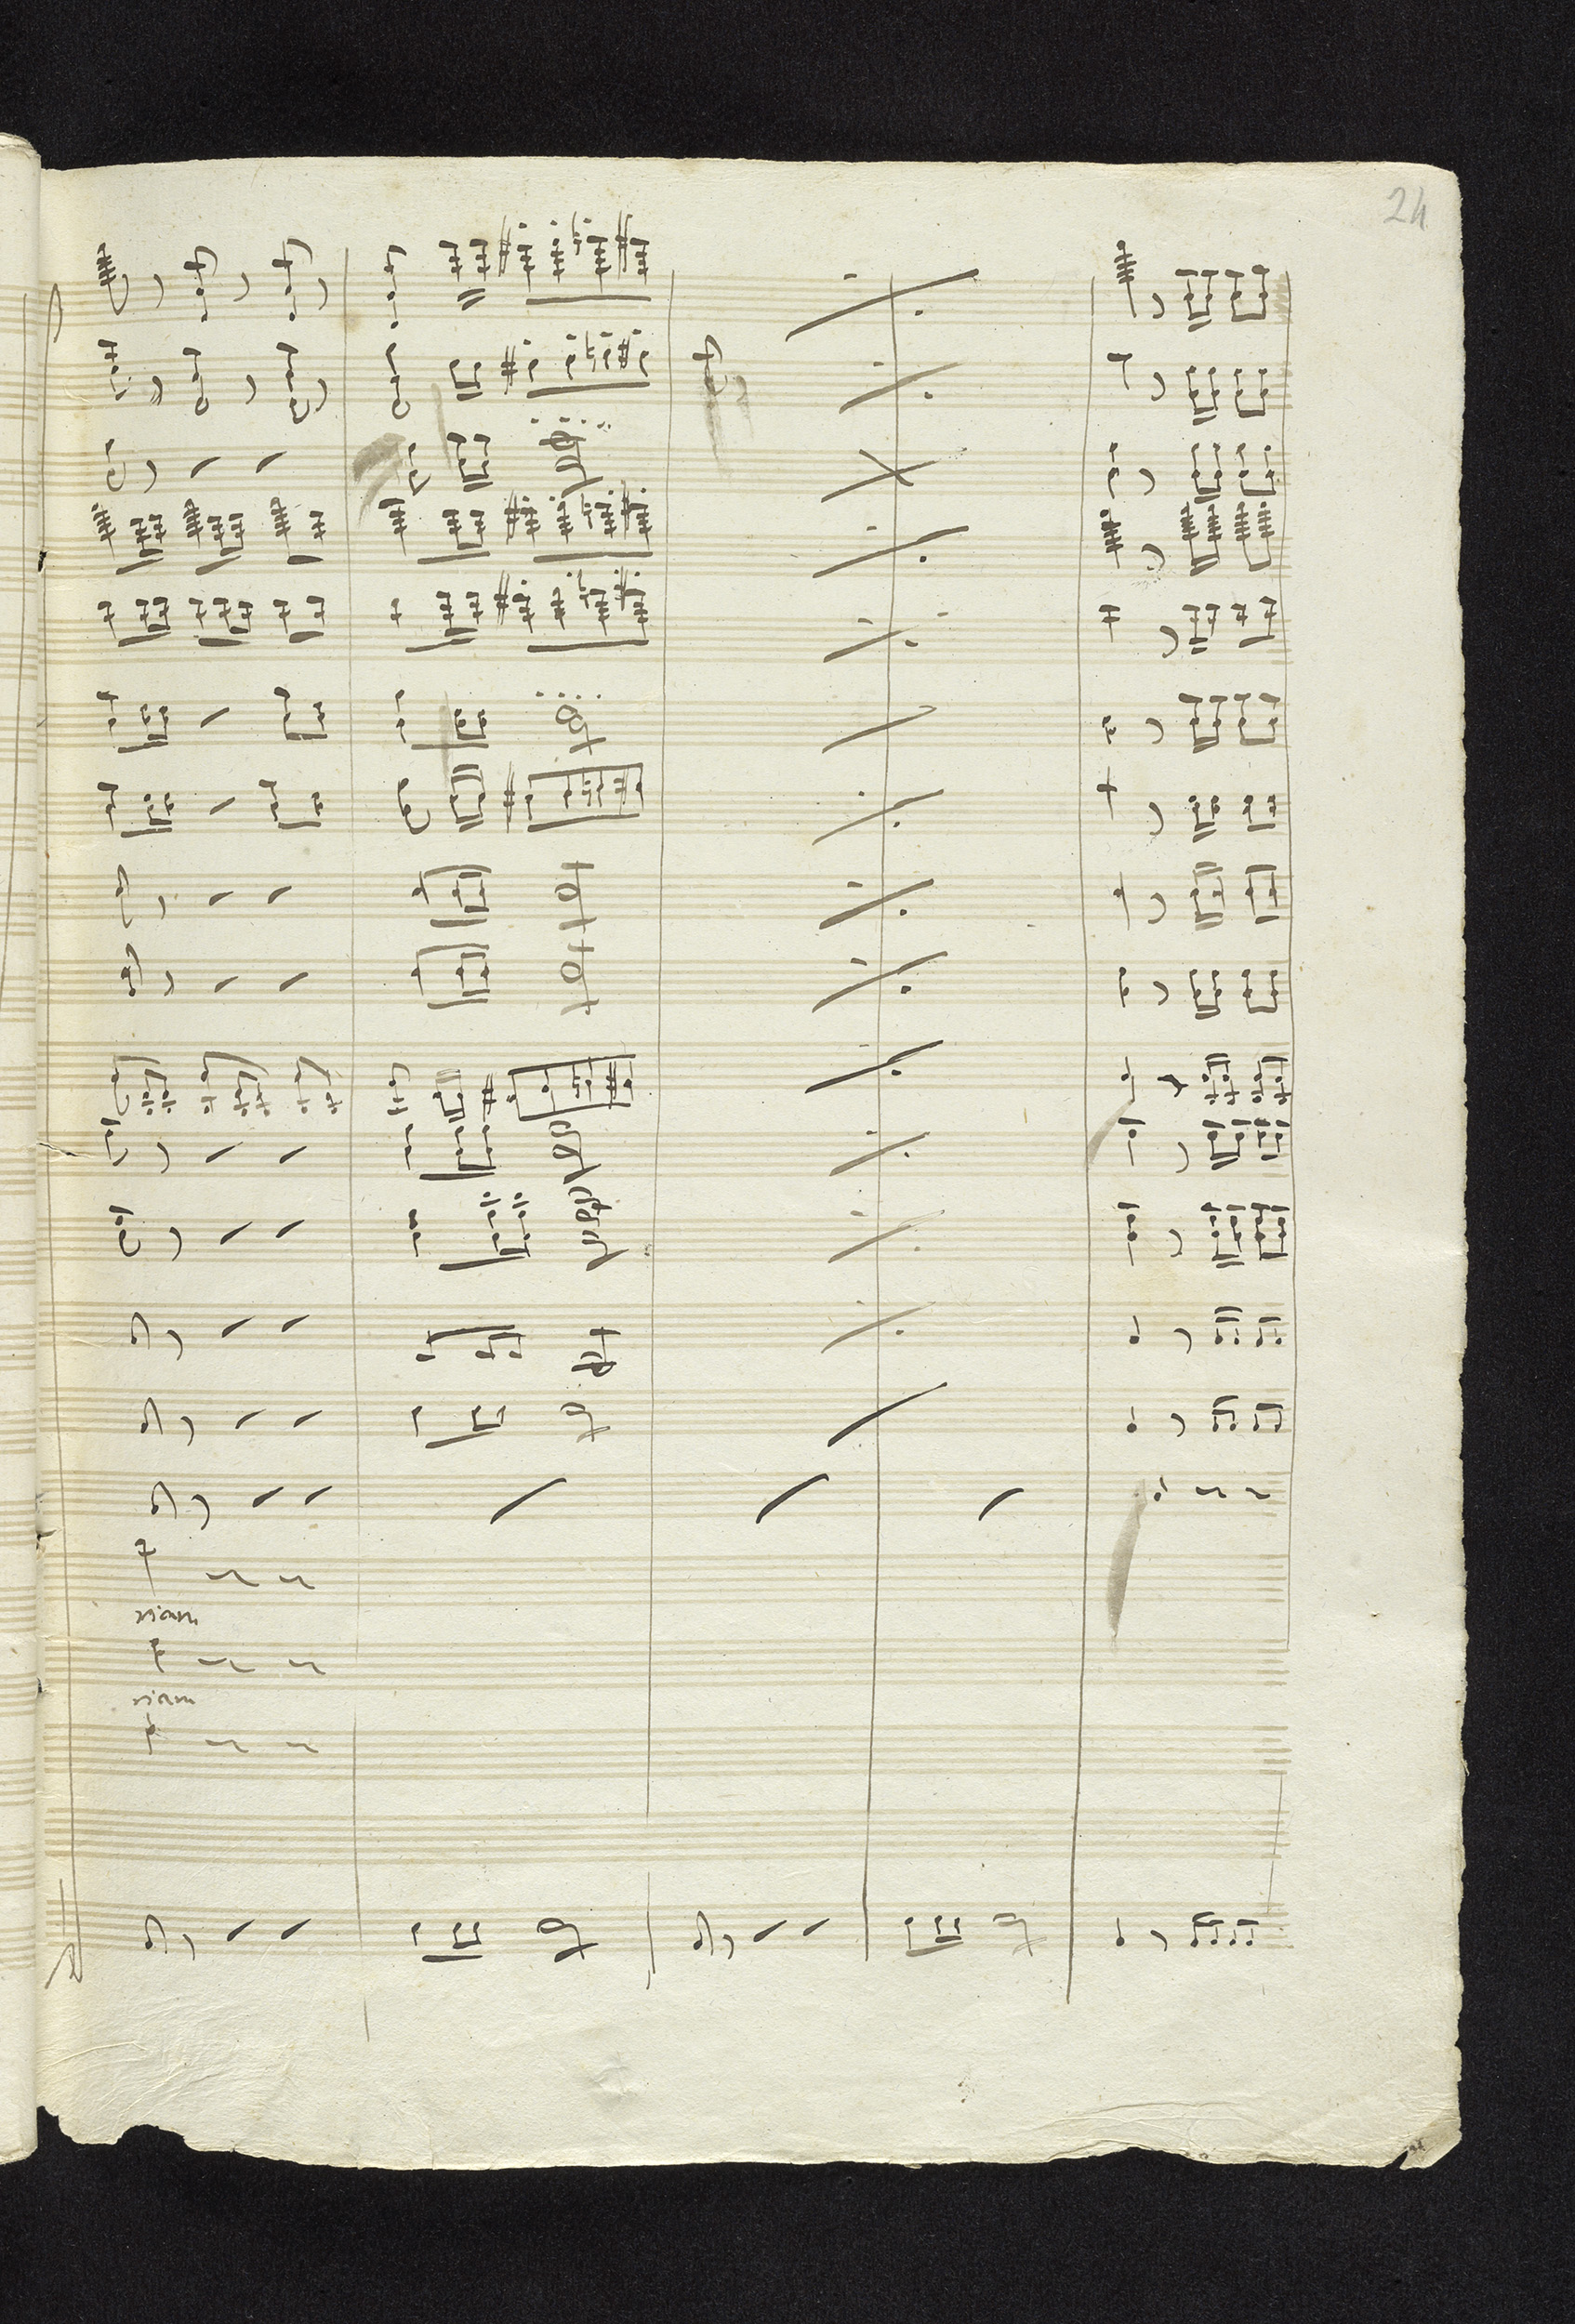 24
riam
riam